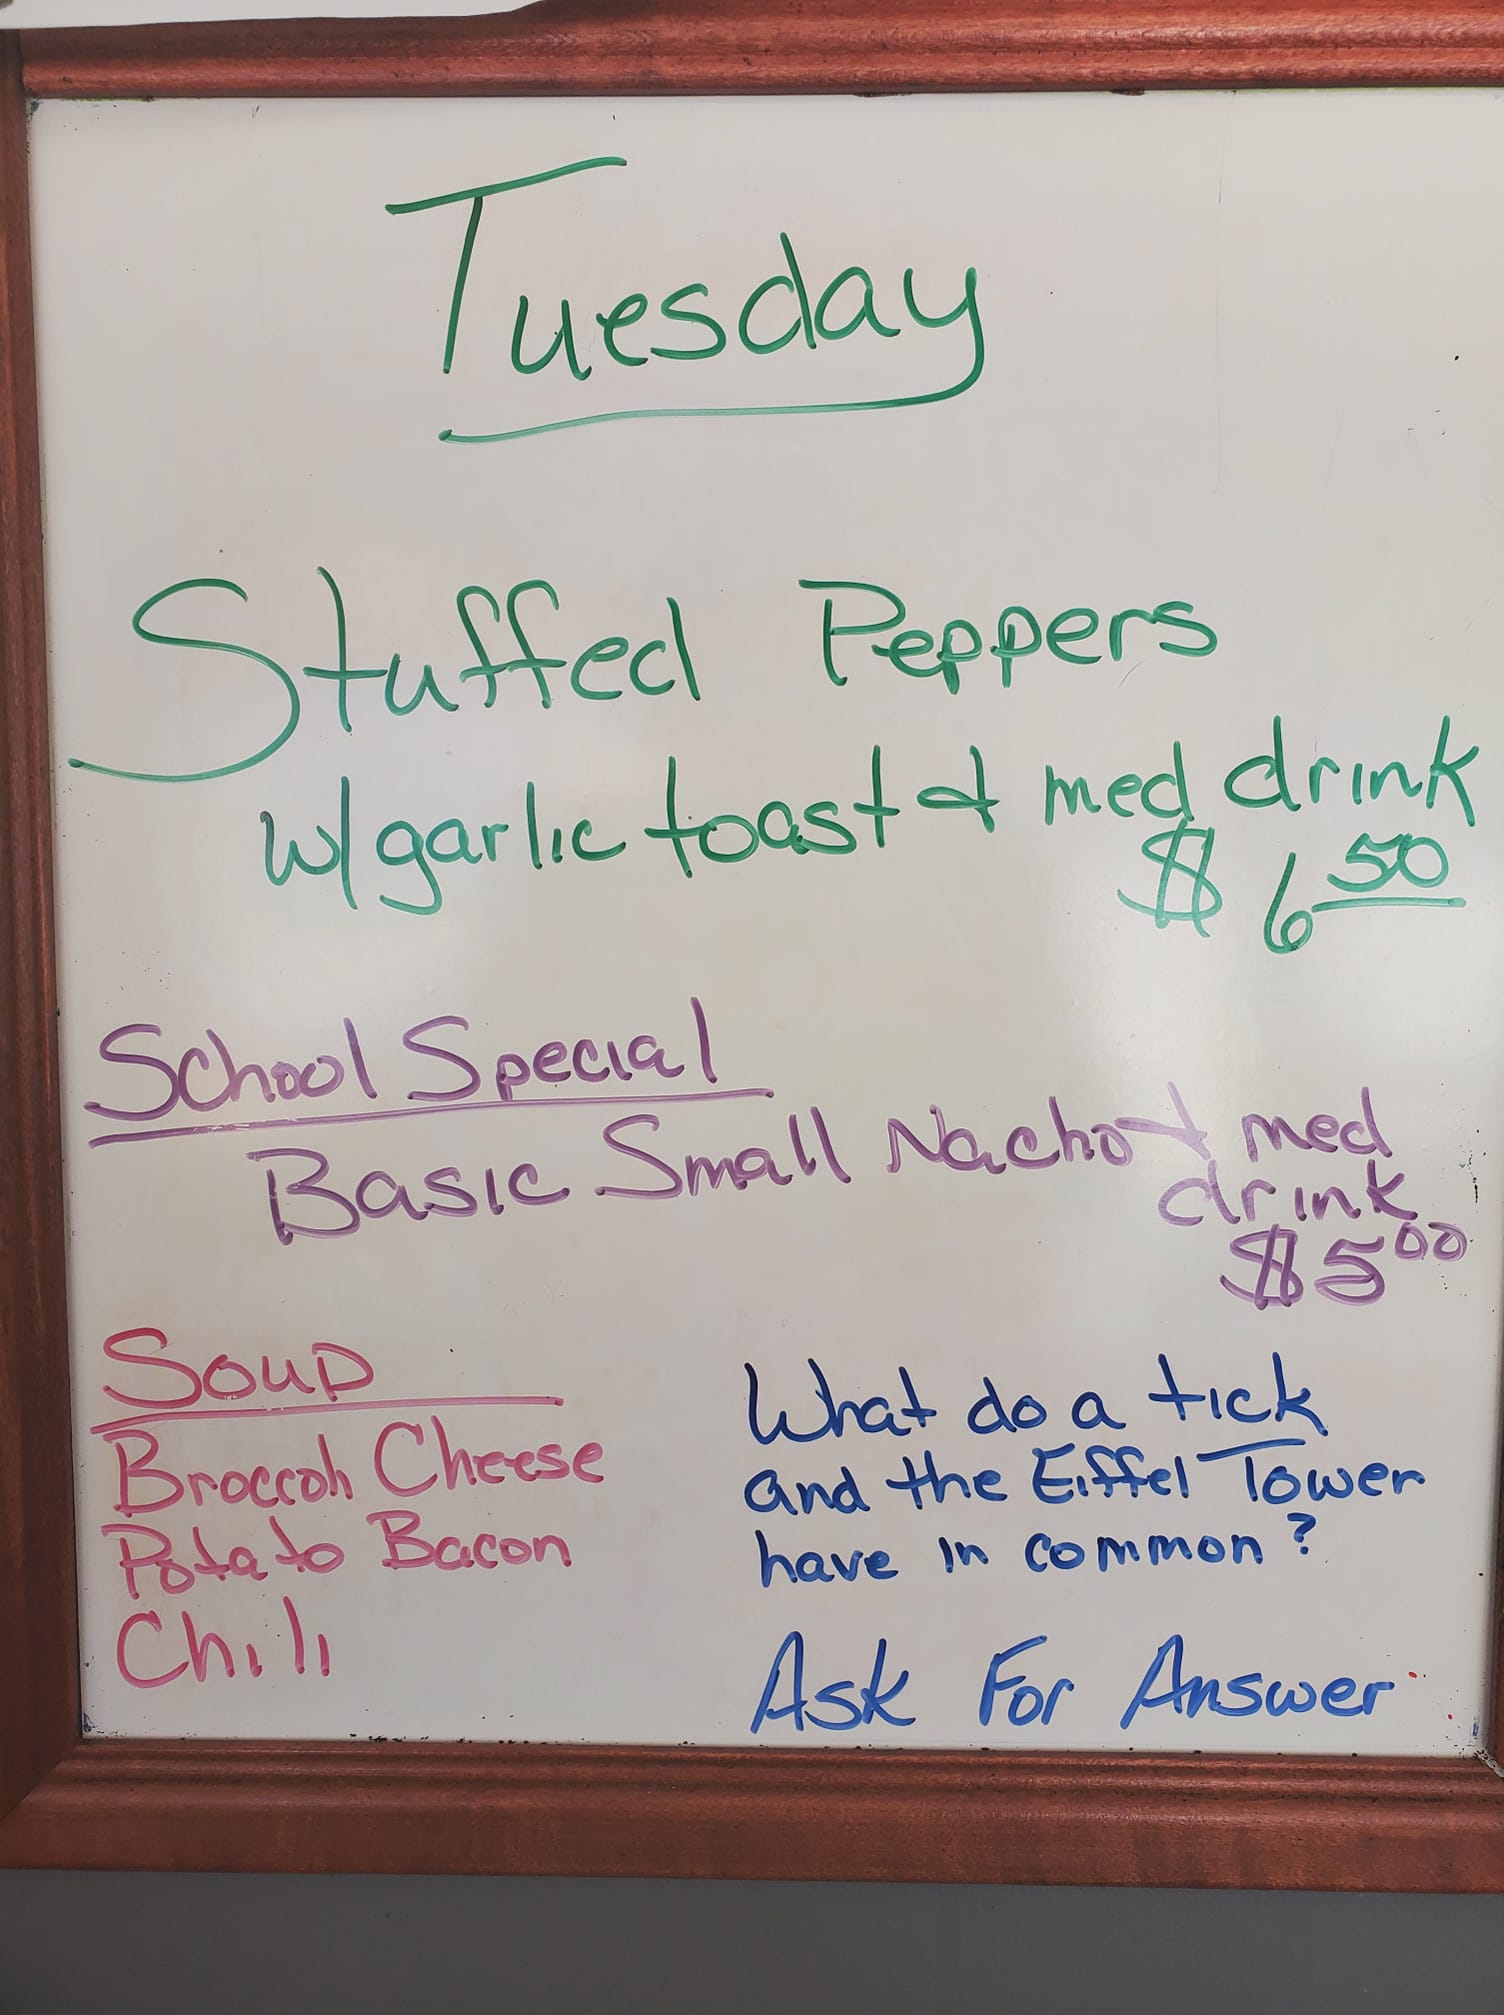 Tuesday
Stuffed Peppers
w/garlic toast & med drink
$6.50
School Special
Basic Small Nacho & med
drink
$5.00
Soup
Broccoli Cheese
Potato Bacon
Chili
What do a tick
and the Eiffel Tower
have in common?
Ask For Answer